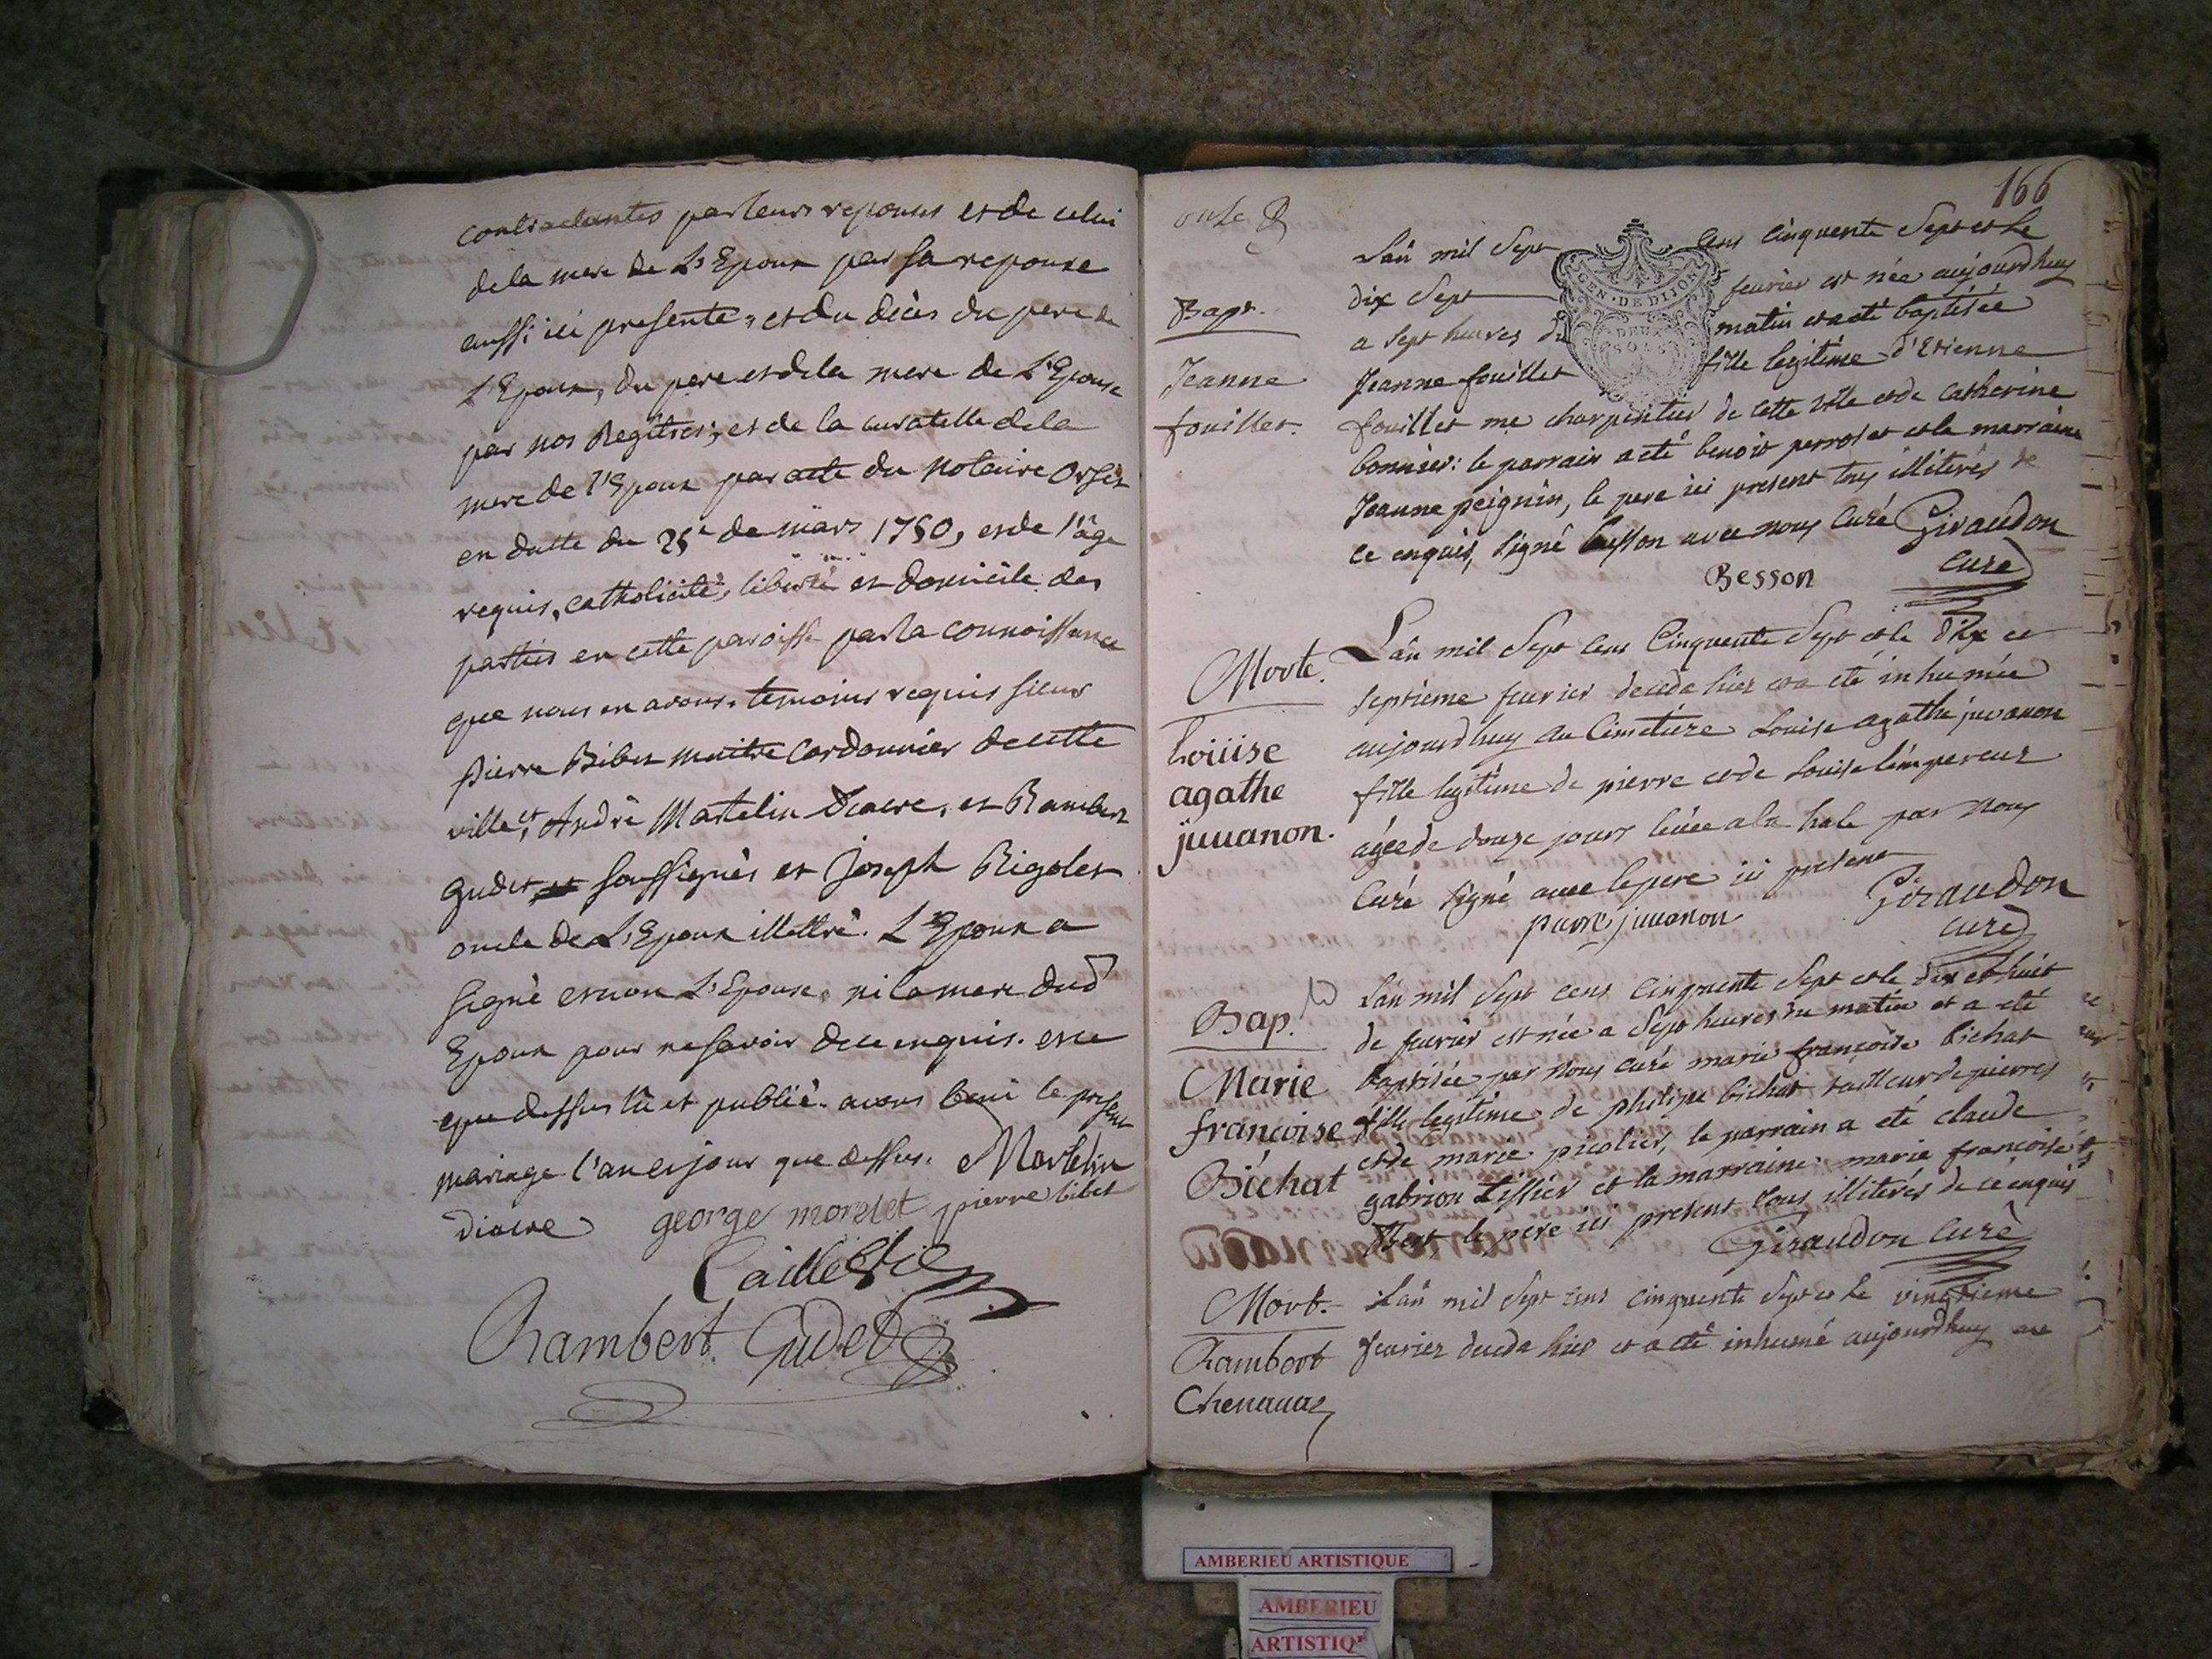 contractantes par leurs reponses et de celui
de la mere de L'Epoux par sa reponse
aussi ici presente, et du décès du pere de
L'Epoux, du pere et de la mere de L'Epouse
par nos Registres; et de la curatelle de la
mere de l'Epoux par acte du Notaire Orsel
en datte du 25e de mars 1750, et de l'âge
requis, catholicité, liberté et domicile des
parties en cette paroisse par la connoissance
que nous en avons. temoins requis sieur
Pierre Bibet maitre Cordonnier de cette
ville, et André Martelin Diacre, et Rambert
Gudet soussignés et Joseph Rigolet
oncle de L'Epoux illettré. L'Epoux a
signé et non L'Epouse, ni la mere dud
Epoux pour ne savoir de ce enquis. et ce
que dessus lû et publié. avons beni le present
mariage l'an et jour que dessus. Martelin
Diacre george morelet pierre bibet
Rambert Gudet
166
onze
Bapt.
Jeanne
fouillet.
L'an mil Sept Cens Cinquente Sept et le
dix Sept fevrier est née aujourdhuy
a sept heures du matin et a eté baptisée
Jeanne fouillet fille legitime d'Etienne
fouillet me charpentier de cette ville et de Catherine
bonnier: le parrain a eté benoit perrot et la marraine
Jeanne peignin, le pere ici present tous illiterés de
ce enquis, signé besson avec nous Curé Giraudon
Besson curé
GEN. DE DIJON
DEUX
SOLS
Morte.
Loüise
agathe
juuanon.
L'an mil Sept cens Cinquente Sept et le dix et
septieme fevrier deceda hier et a eté inhumée
aujourdhuy au Cimetiere Louise agathe juvanon
fille legitime de pierre et de Louise l'empereur
agée de douze jours levée a la hale par nous
Curé signé avec le pere ici present
pierre juuanon Giraudon
curé
Bap.
Marie
françoise
Bichat
L'an mil Sept cens Cinquente Sept et le dix et huit
de fevrier est née a Sept heures du matin et a eté
baptisée par nous curé marie françoise bichat
fille legitime de philipe bichat tailleur de pierres
et de marie picolier, le parrain a eté claude
gabrion tissier et la marraine marie françoise
le pere ici present tous illiterés de ce enquis
Giraudon Curé
Mort.
Rambert
Chenauaz
L'an mil Sept cens cinquente Sept et le vingtieme
fevrier deceda hier et a eté inhumé aujourdhuy au
AMBERIEU ARTISTIQUE
AMBERIEU
ARTISTIQ